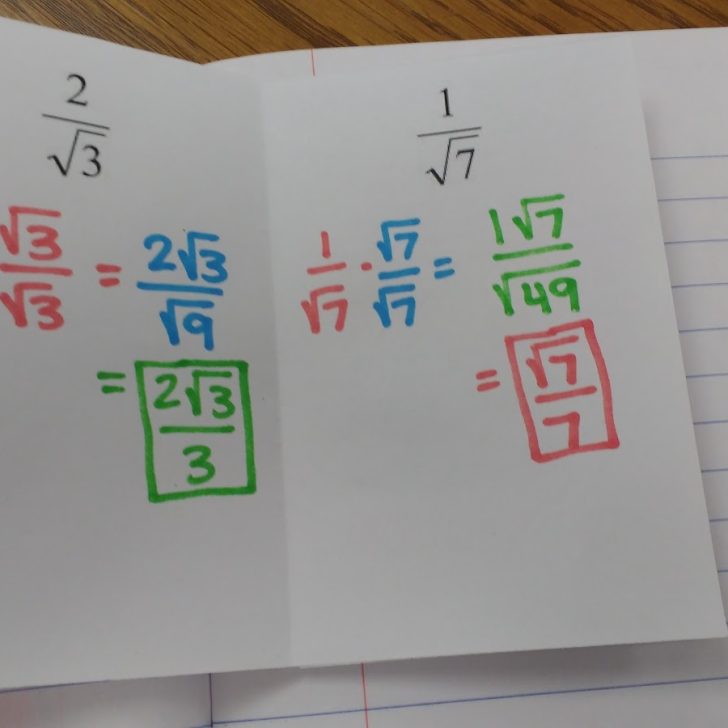 2/√3
√3/√3 = 2√3/√9
= 2√3/3
1/√7
1/√7 · √7/√7 = 1√7/√49
= √7/7